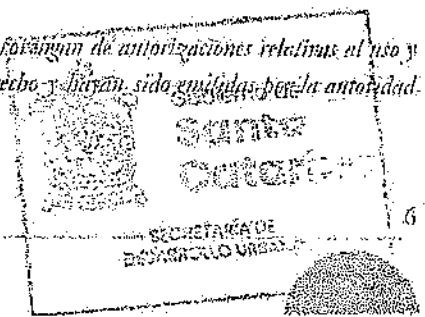 de autorizaciones relativas al uso y
hayan sido emitidas por la autoridad
Santa
Catarina
6
SECRETARÍA DE
DESARROLLO URBANO